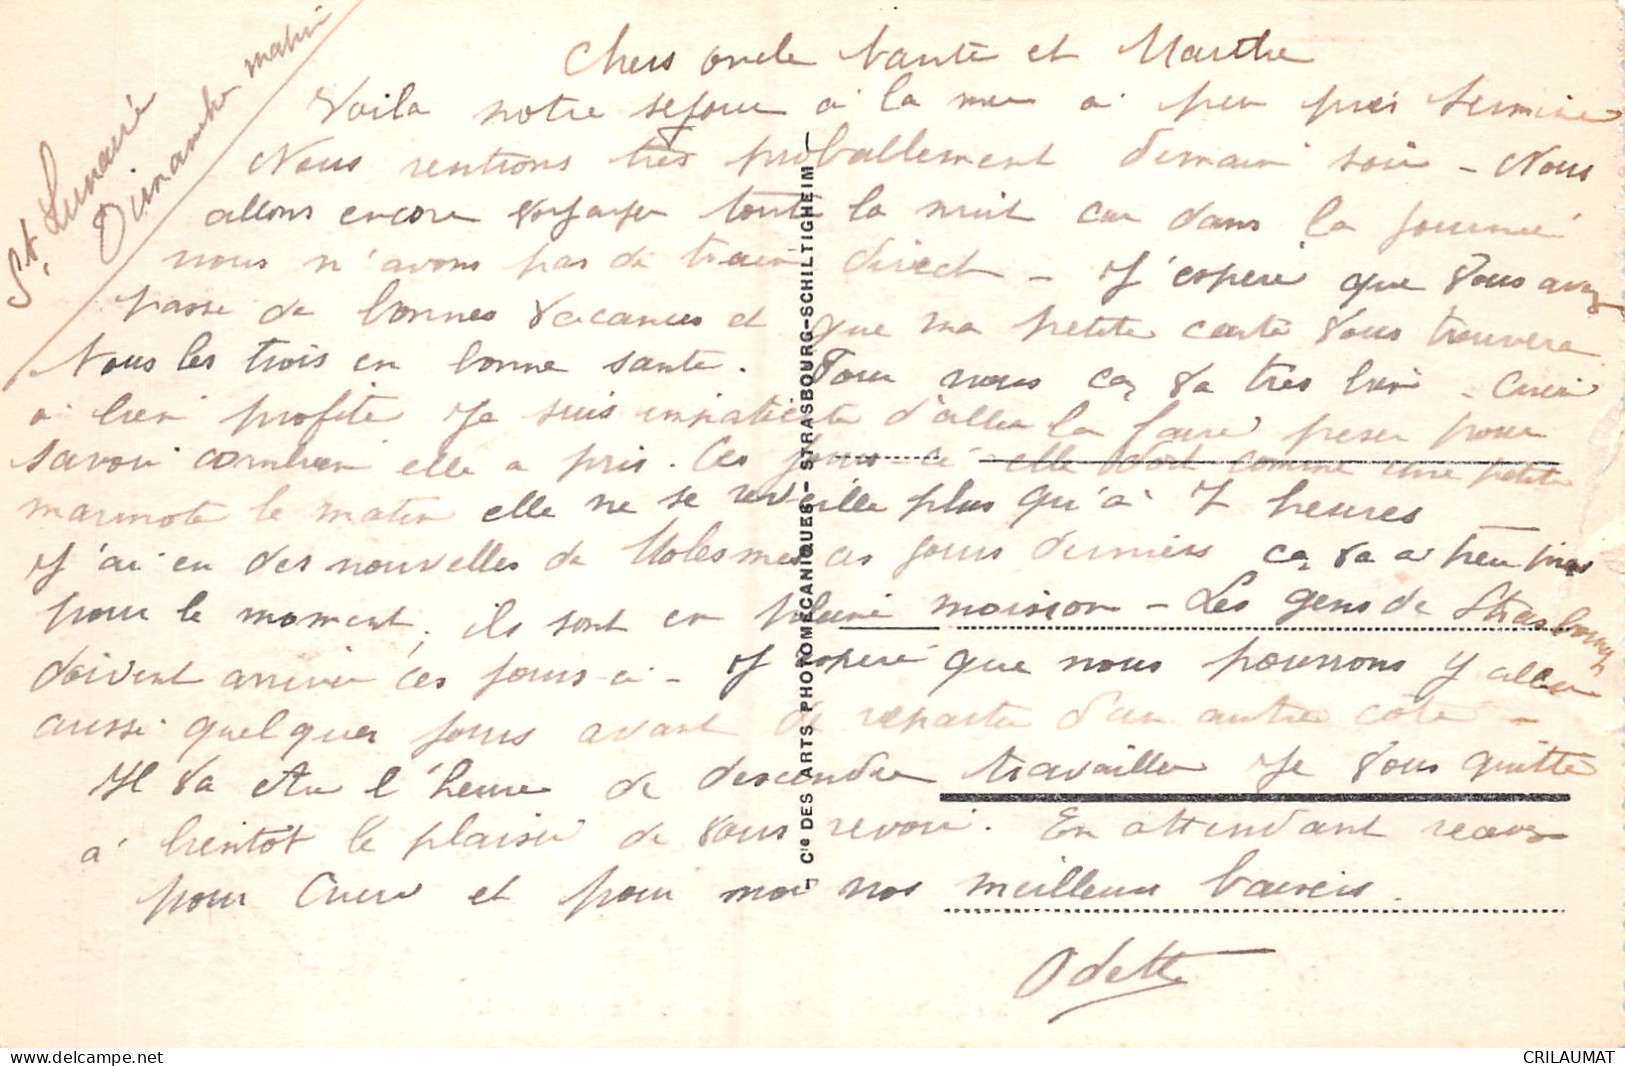 St Lunaire
Dimanche matin
Chers oncle tante et Marthe
Voila notre sejour a la mer a peu prés terminé
Nous rentrons très probablement demain soir - Nous
allons encore voyager toute la nuit car dans la journée
nous n'avons pas de train direct - J'espere que vous avez
passe de bonnes vacances et que ma petite carte vous trouvera
tous les trois en bonne sante. Pour nous ça va très bien -
a bien profite Je suis impatiente d'aller la faire peser pour
savoir combien elle a pris. Ces jours-ci elle dort comme une petite
marmote le matin elle ne se reveille plus qu'à 7 heures
J'ai eu des nouvelles de Molesmes ces jours derniers ça va a peu pres
pour le moment, ils sont en pleine moisson - Les gens de Strasbourg
doivent arriver ces jours-ci - J'espere que nous pourrons y aller
aussi quelques jours avant de repartir d'un autre coté -
Il va être l'heure de descendre travailler Je vous quitte
à bientot le plaisir de vous revoir. En attendant recevez
pour et pour moi nos meilleurs baisers.
Odette
Cie DES ARTS PHOTOMECANIQUES - STRASBOURG-SCHILTIGHEIM
www.delcampe.net
CRILAUMAT